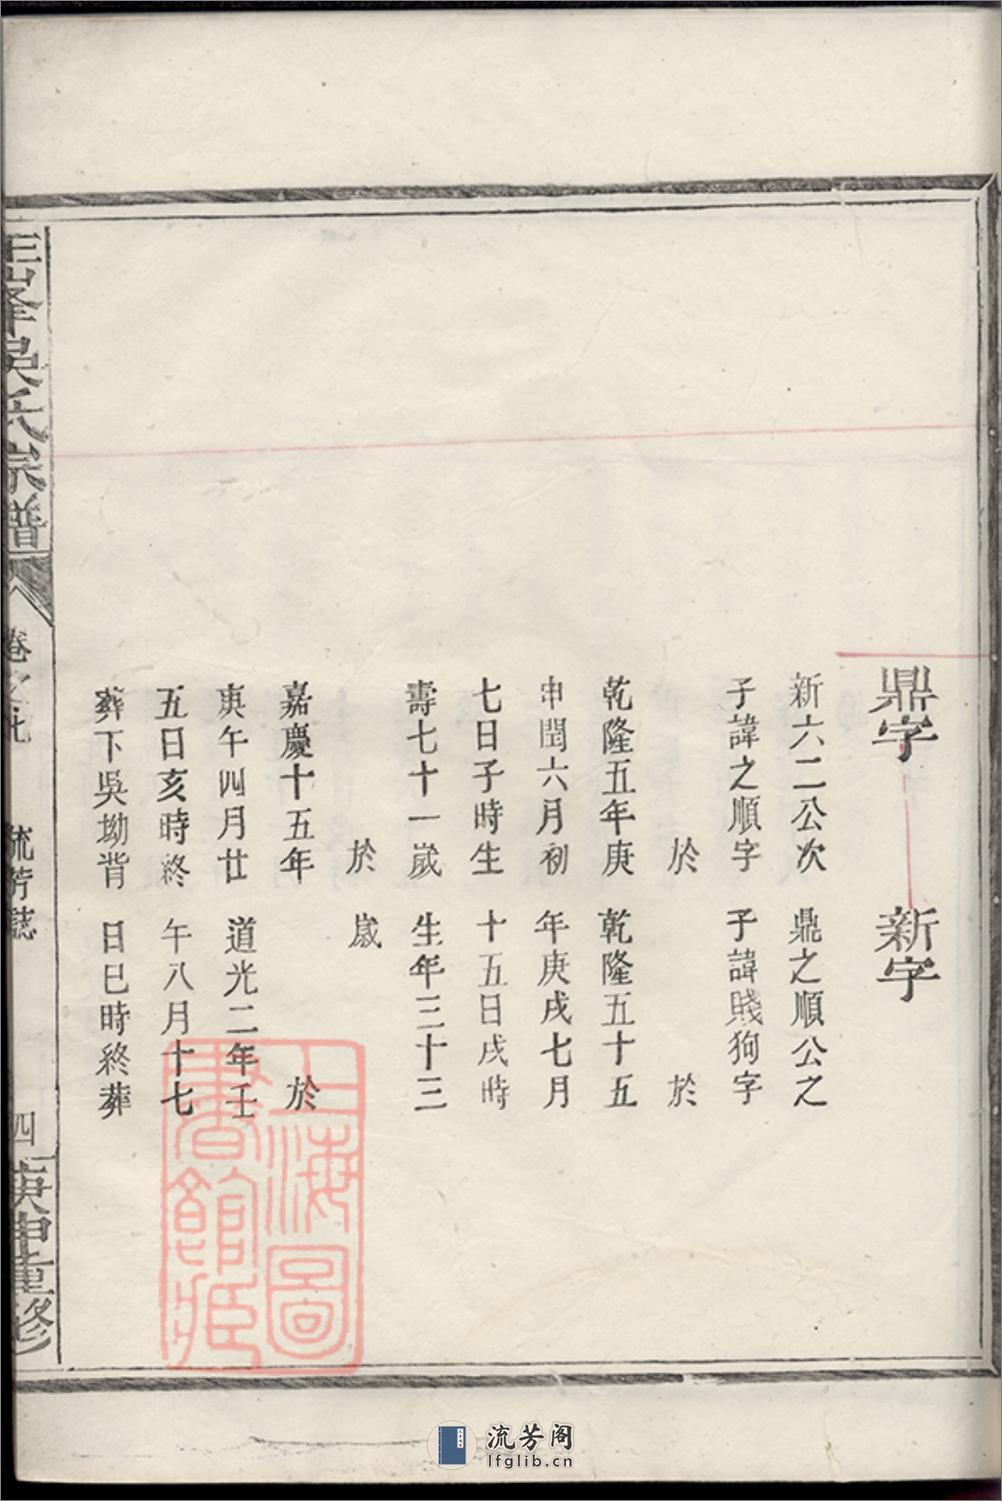 鼎字
新六二公次
子諱之順字
於
乾隆五年庚
申閏六月初
七日子時生
壽七十一歲
於
嘉慶十五年
庚午四月廿
五日亥時終
葬下吳坳背
新字
鼎之順公之
子諱賤狗字
於
乾隆五十五
年庚戌七月
十五日戌時
生年三十三
歲
於
道光二年壬
午八月十七
日巳時終葬
峰吳氏宗譜
卷之
流芳誌
四
庚申重修
上海圖
書館藏
流芳阁
lfglib.cn